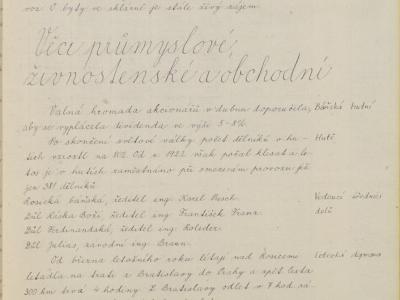 voz. O byty ve sklárně je stále živý zájem.
Věci průmyslové,
živnostenské a obchodní
Valná hromada akcionářů v dubnu doporučila, Báňská hutní
aby se vyplácela dividenda ve výši 5-8%.
Po skončení světové války počet dělníků v hu- Hutě
tích vzrostl na 1112. Od r. 1922 však počal klesat a le-
tos je v hutích zaměstnáno při omezeném provozu pů
jen 381 dělníků
Rosická báňská, ředitel ing. Karel Vesch. Vedoucí úředníci
Důl Láska Boží, ředitel ing. František Franz. dolů
Důl Ferdinandská, ředitel ing. Koleder.
Důl Julius, závodní ing. Braun.
Od března letošního roku létají nad Rosicemi Letecká doprava
letadla na trati z Bratislavy do Prahy a zpět. Cesta
300 km trvá 4 hodiny. Z Bratislavy odlet v 7 hod. rá-